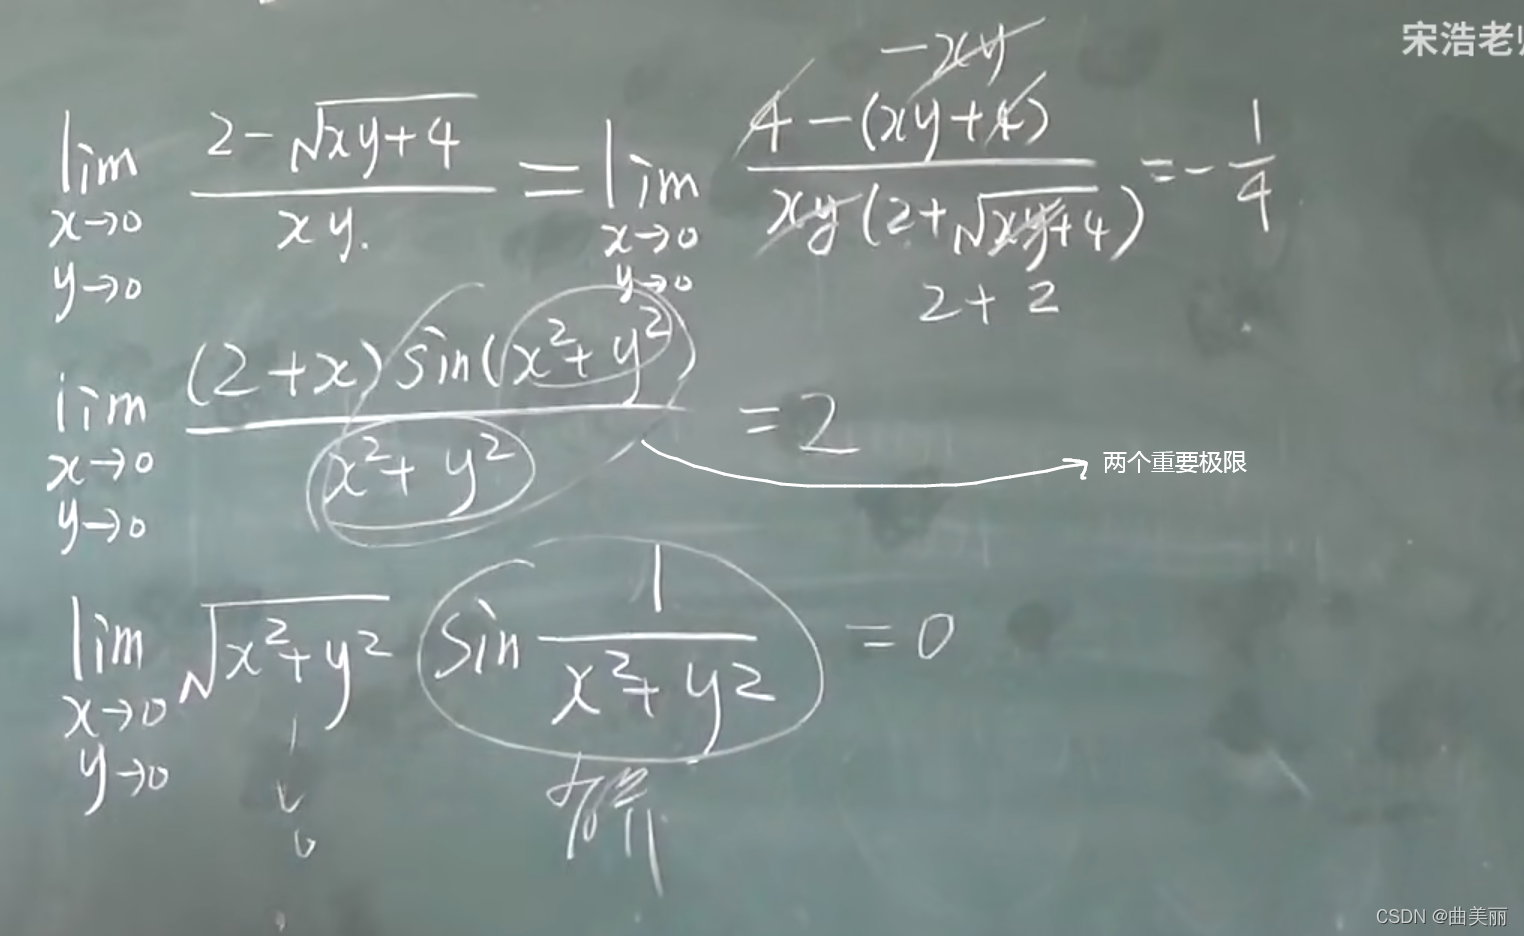 宋浩老师
-xy
lim x→0 y→0 (2-√(xy+4))/(xy) = lim x→0 y→0 (4-(xy+4))/(xy(2+√(xy+4))) = -1/4
2+2
lim x→0 y→0 ((2+x)sin(x²+y²))/(x²+y²) = 2
两个重要极限
lim x→0 y→0 √(x²+y²) sin 1/(x²+y²) = 0
↓
0
有界
CSDN @曲美丽